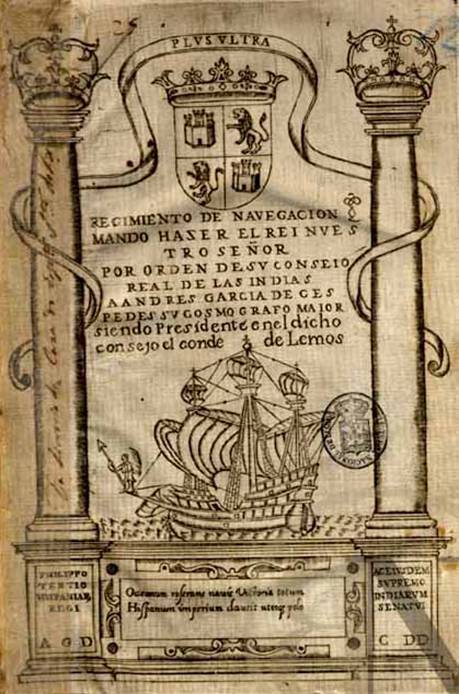 PLVS VLTRA
REGIMIENTO DE NAVEGACION
MANDO HASER EL REI NVES
TRO SEÑOR
POR ORDEN DE SV CONSEIO
REAL DE LAS INDIAS
A ANDRES GARCIA DE CES
PEDES SV COSMOGRAFO MAIOR
siendo Presidente enel dicho
consejo el conde de Lemos
PHILIPPO
TERTIO
HISPANIAR
REGI
A G D
Oceanum reserans nauis Victoria totum
Hispanum imperium clausit utroq polo
AC EIVSDEM
SVPREMO
INDIARVM
SENATVI
C DD